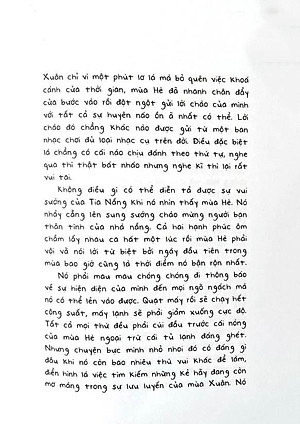 Xuân chỉ vì một phút lơ là mà bỏ quên việc khoá
cánh của thời gian, mùa Hè đã nhanh chân đẩy
của bước vào rồi đột ngột gửi lời chào của mình
với tất cả sự huyên náo ồn ả nhất có thể. Lời
chào đó chẳng khác nào được gửi từ một ban
nhạc chơi đủ loại nhạc cụ trên đời. Điều đặc biệt
là chẳng có cái nào chịu đánh theo thứ tự, nghe
qua thì thật bát nháo nhưng nghe kĩ thì lại rất
vui tai.
Không điều gì có thể diễn tả được sự vui
sướng của Tia Nắng khi nó nhìn thấy mùa Hè. Nó
nhảy cẫng lên sung sướng chào mừng người bạn
thân tình của nhà nắng. Cả hai hạnh phúc ôm
chầm lấy nhau ca hát một lúc rồi mùa Hè phải
vội vã nói lời từ biệt bởi ngày đầu tiên trong
mùa bao giờ cũng là thời điểm nó bận rộn nhất.
Nó phải mau mau chóng chóng đi thông báo
về sự hiện diện của mình đến mọi ngõ ngách mà
nó có thể len vào được. Quạt máy rồi sẽ chạy hết
công suất, máy lạnh sẽ phải giảm xuống cực độ.
Tất cả mọi thứ đều phải cúi đầu trước cái nóng
của mùa Hè ngoại trừ cái tủ lạnh đáng ghét.
Nhưng chuyện bực mình nhỏ nhoi đó có đáng gì
đâu khi nó còn bao nhiêu thứ vui khác để làm,
điển hình là việc tìm kiếm những kẻ hãy đang còn
mơ màng trong sự lưu luyến của mùa Xuân. Nó